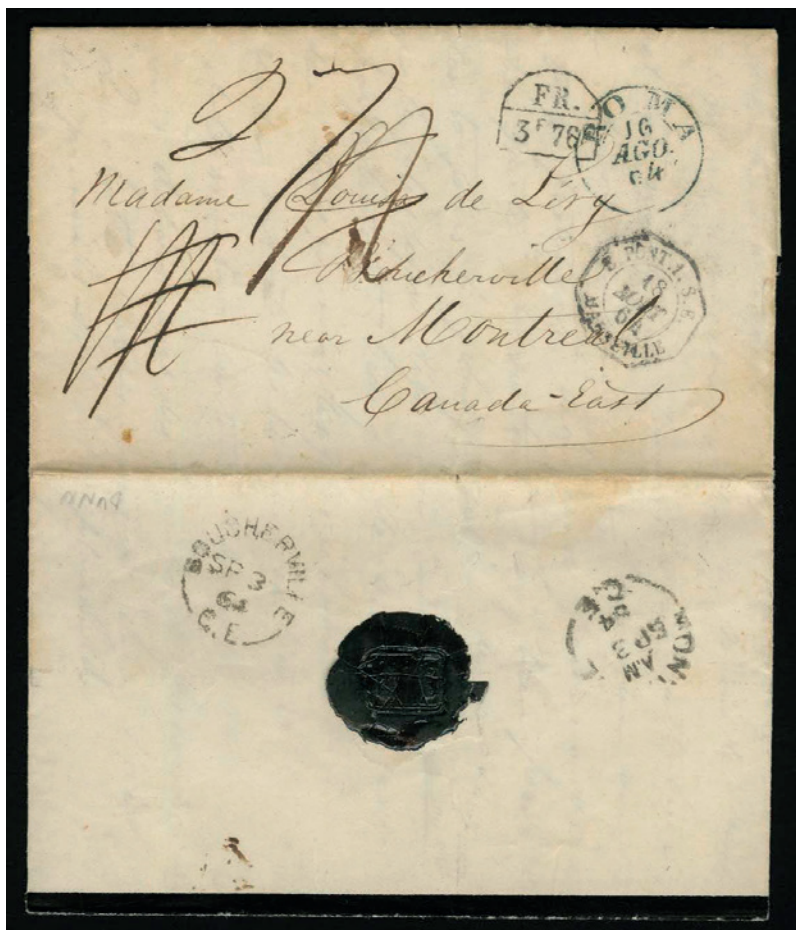 FR.
3F 76
ROMA
16
AGO.
64
Madame Louise de Léry
Boucherville
near Montreal
Canada-East
E. PONT. 1. S.E.
18
AOUT
64
MARSEILLE
BOUCHERVILLE
SP 3
64
C.E
MONT
AM
SP 3
64
C.E